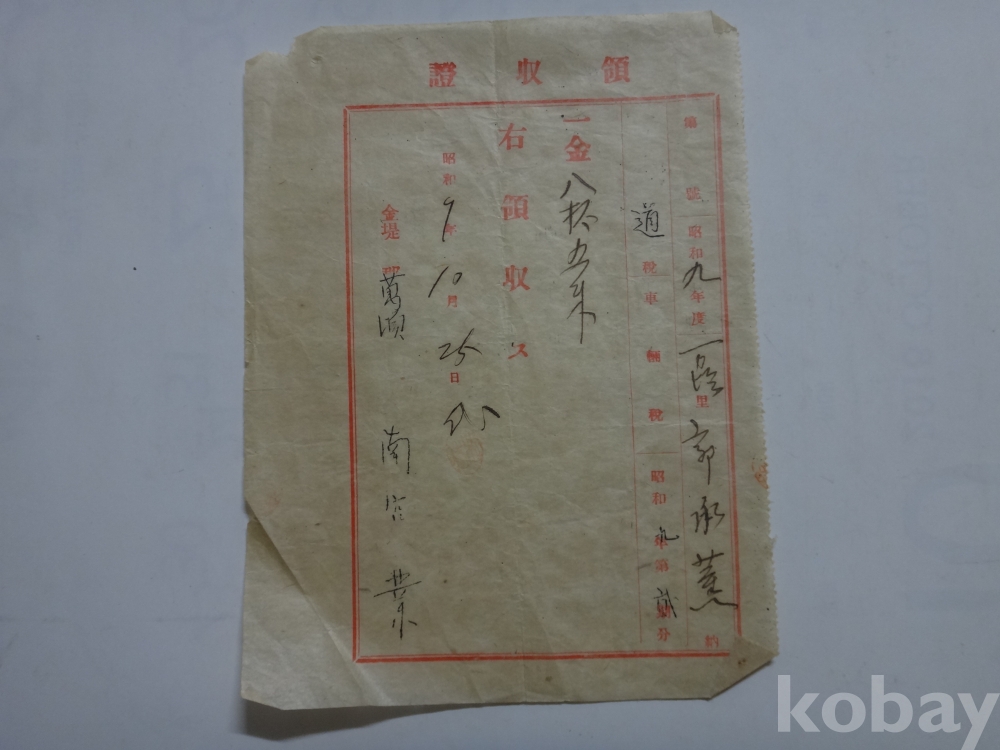 領收證
第 號 昭和九年度 里 郭承 納
道稅車輛稅 昭和九年第貳期分
一金八拾五
右領收ス
昭和9年10月25日
金堤郡 萬頃 南宮
kobay